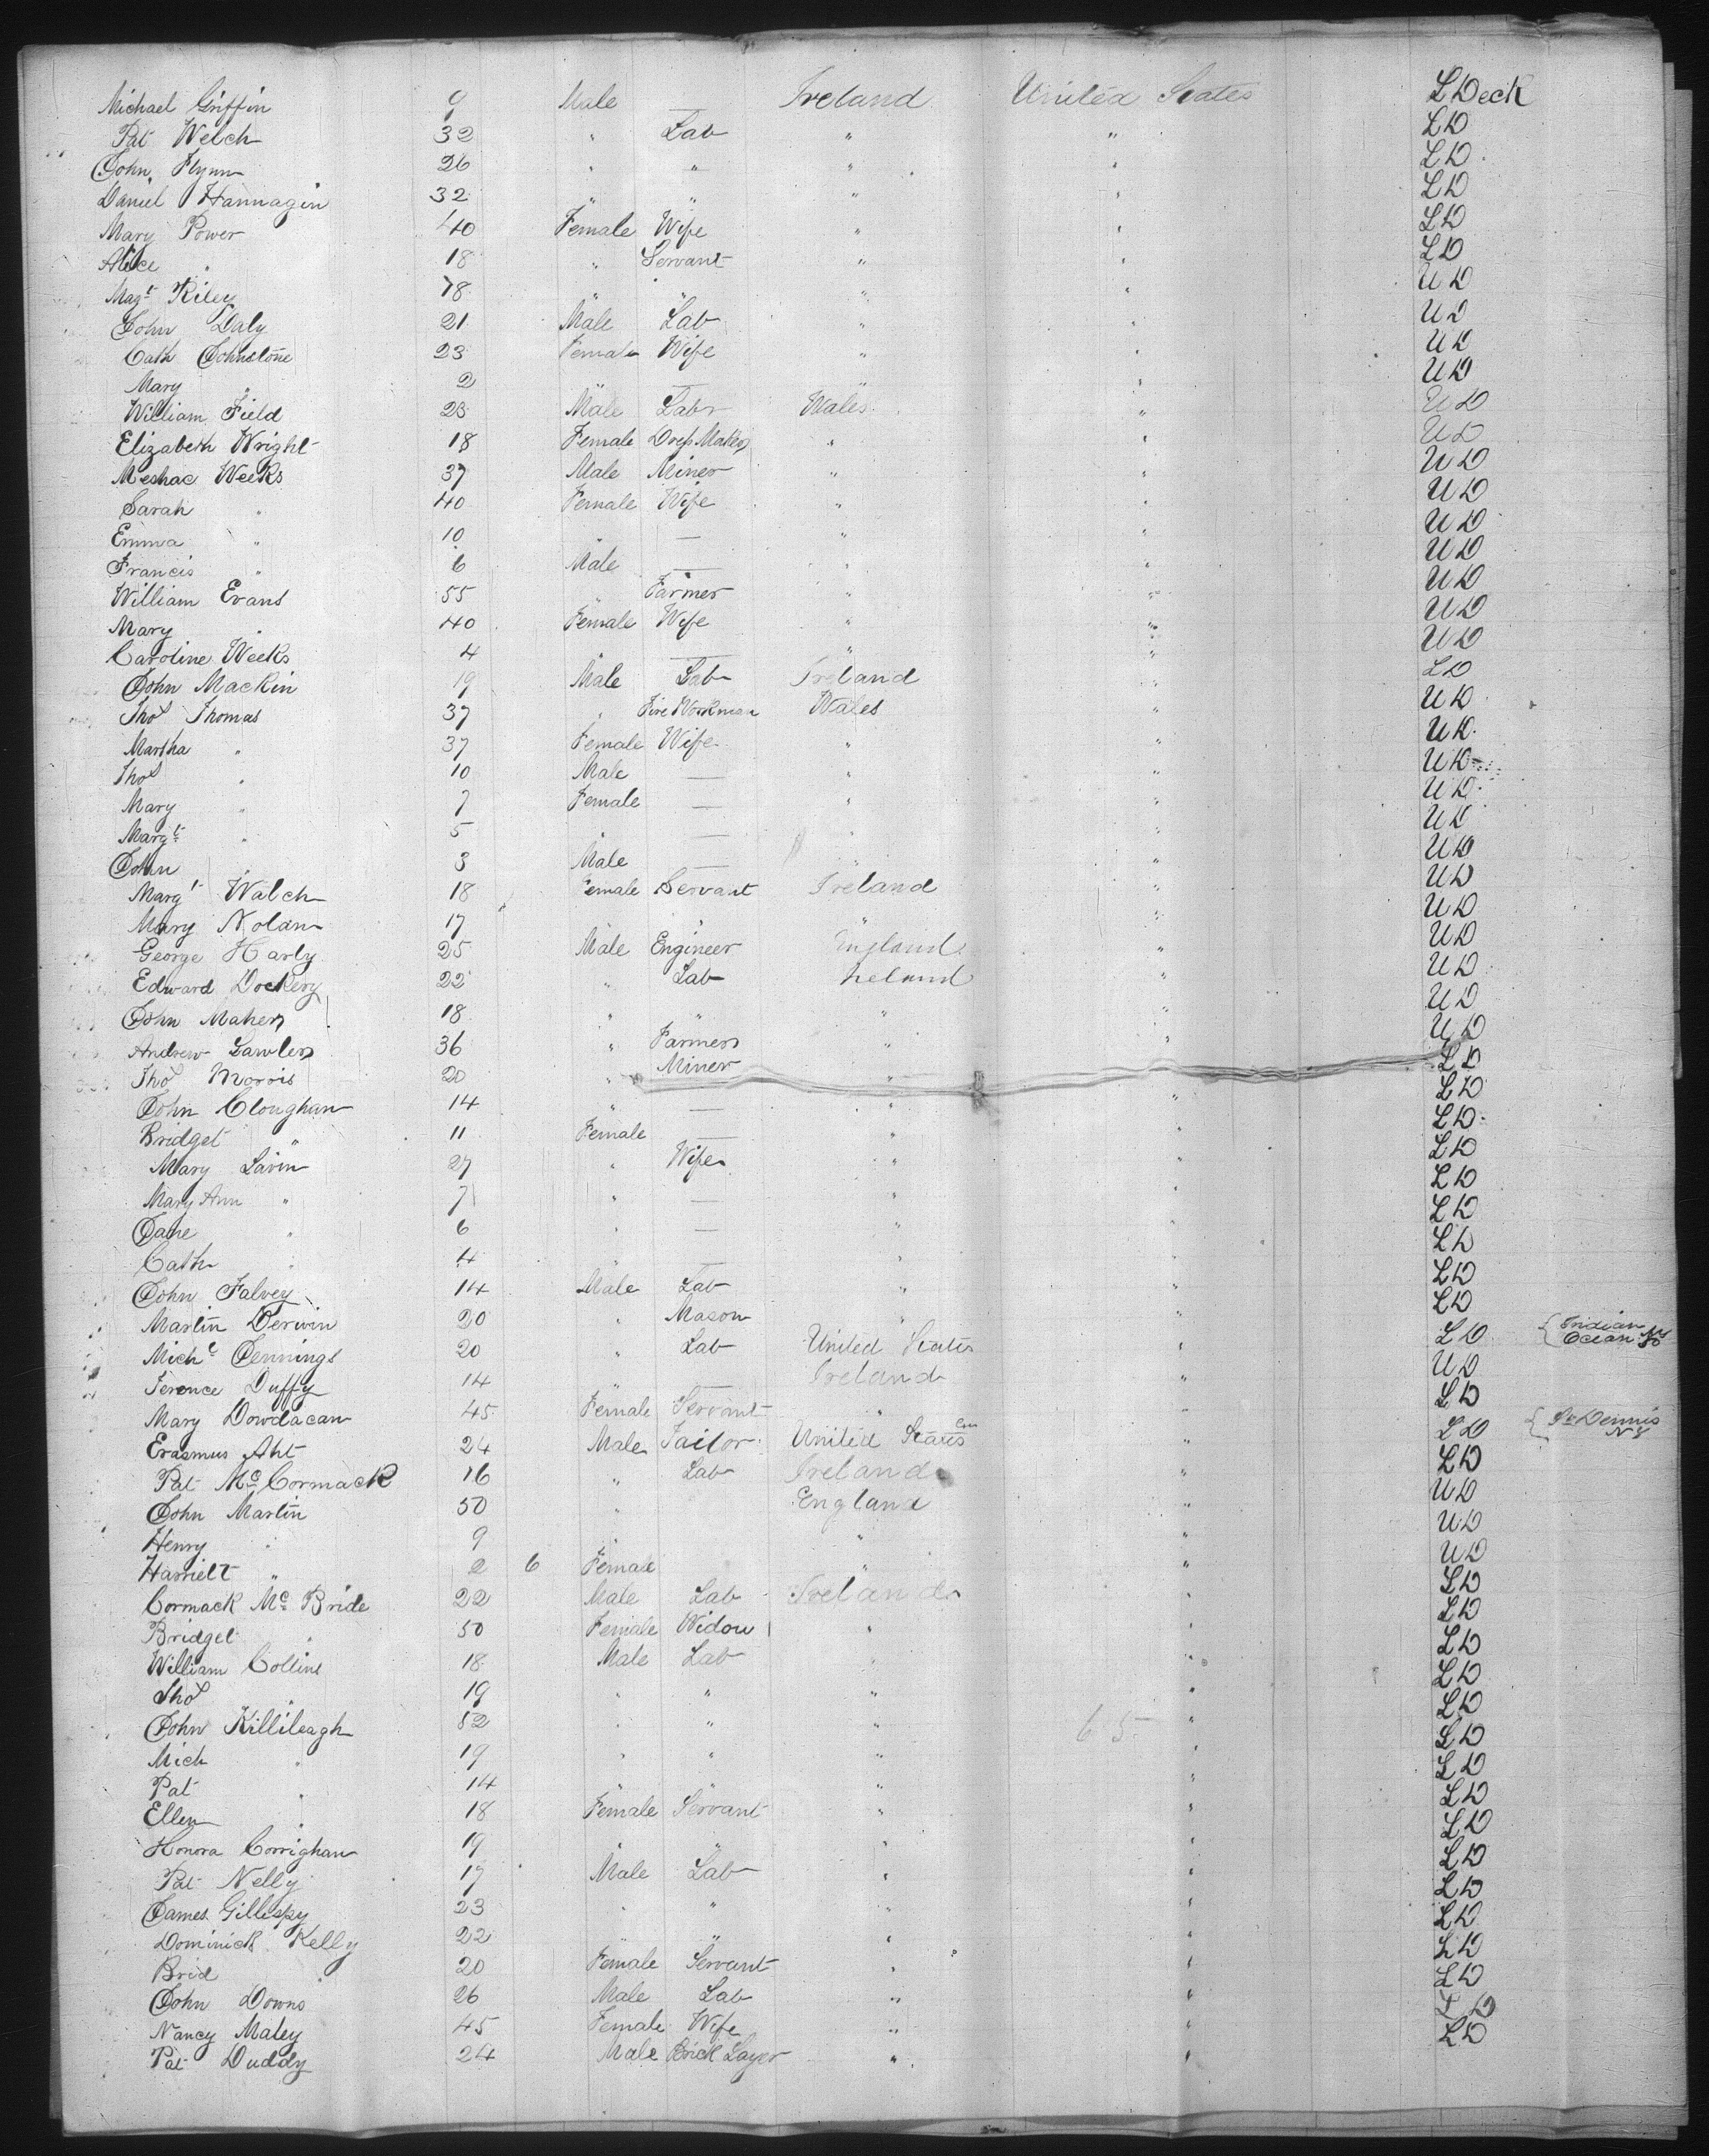 Michael Griffin 9 Male — Ireland United States L Deck
Pat Welch 32 " Lab " " L D
John Flynn 26 " " " " L D
Daniel Hannagin 32 " " " " L D
Mary Power 40 Female Wife " " L D
Alice " 18 " Servant " " L D
Magt Riley 18 " " " " U D
John Daly 21 Male Lab " " U D
Cath Johnstone 23 Female Wife " " U D
Mary " 2 " — " " U D
William Field 23 Male Labr Wales " U D
Elizabeth Wright 18 Female Dress Maker " " U D
Meshac Weeks 37 Male Miner " " U D
Sarah " 40 Female Wife " " U D
Emma " 10 " — " " U D
Francis " 6 Male — " " U D
William Evans 55 " Farmer " " U D
Mary " 40 Female Wife " " U D
Caroline Weeks 4 " — " " U D
John Mackin 19 Male Lab Ireland " L D
Thos Thomas 37 " Fire Workman Wales " U D
Martha " 37 Female Wife " " U D
Thos " 10 Male — " " U D
Mary " 7 Female — " " U D
Margt " 5 " — " " U D
John " 3 Male — " " U D
Margt Walch 18 Female Servant Ireland " U D
Mary Nolan 17 " " " " U D
George Harly 25 Male Engineer England " U D
Edward Dockery 22 " Lab Ireland " U D
John Maher 18 " " " " U D
Andrew Lawler 36 " Farmer " " U D
Thos Morris 20 " Miner " " L D
John Cloughan 14 " — " " L D
Bridget " 11 Female — " " L D
Mary Lavin 27 " Wife " " L D
Mary Ann " 7 " — " " L D
Jane " 6 " — " " L D
Cath " 4 " — " " L D
John Falvey 14 Male Lab " " L D
Martin Derwin 20 " Mason " " L D
Michl Jennings 20 " Lab United States " L D { Indian Ocean NY
Terence Duffy 14 " — Ireland " U D
Mary Dowdacan 45 Female Servant " " L D
Erasmus Aht 24 Male Tailor United States " L D { St Dennis NY
Pat McCormack 16 " Lab Ireland " L D
John Martin 50 " England " U D
Henry " 9 " " " U D
Harriett " 2 6 Female " " U D
Cormack Mc Bride 22 Male Lab Ireland " L D
Bridget " 50 Female Widow " " L D
William Collins 18 Male Lab " " L D
Thos " 19 " " " " L D
John Killileagh 52 " " " 65 " L D
Mich " 19 " " " " L D
Pat " 14 " " " " L D
Ellen " 18 Female Servant " " L D
Honora Corrighan 19 " " " " L D
Pat Nelly 17 Male Lab " " L D
James Gillespy 23 " " " " L D
Dominick Kelly 22 " " " " L D
Brid " 20 Female Servant " " L D
John Downs 26 Male Lab " " L D
Nancy Maley 45 Female Wife " " L D
Pat Duddy 24 Male Brick Layer " " L D